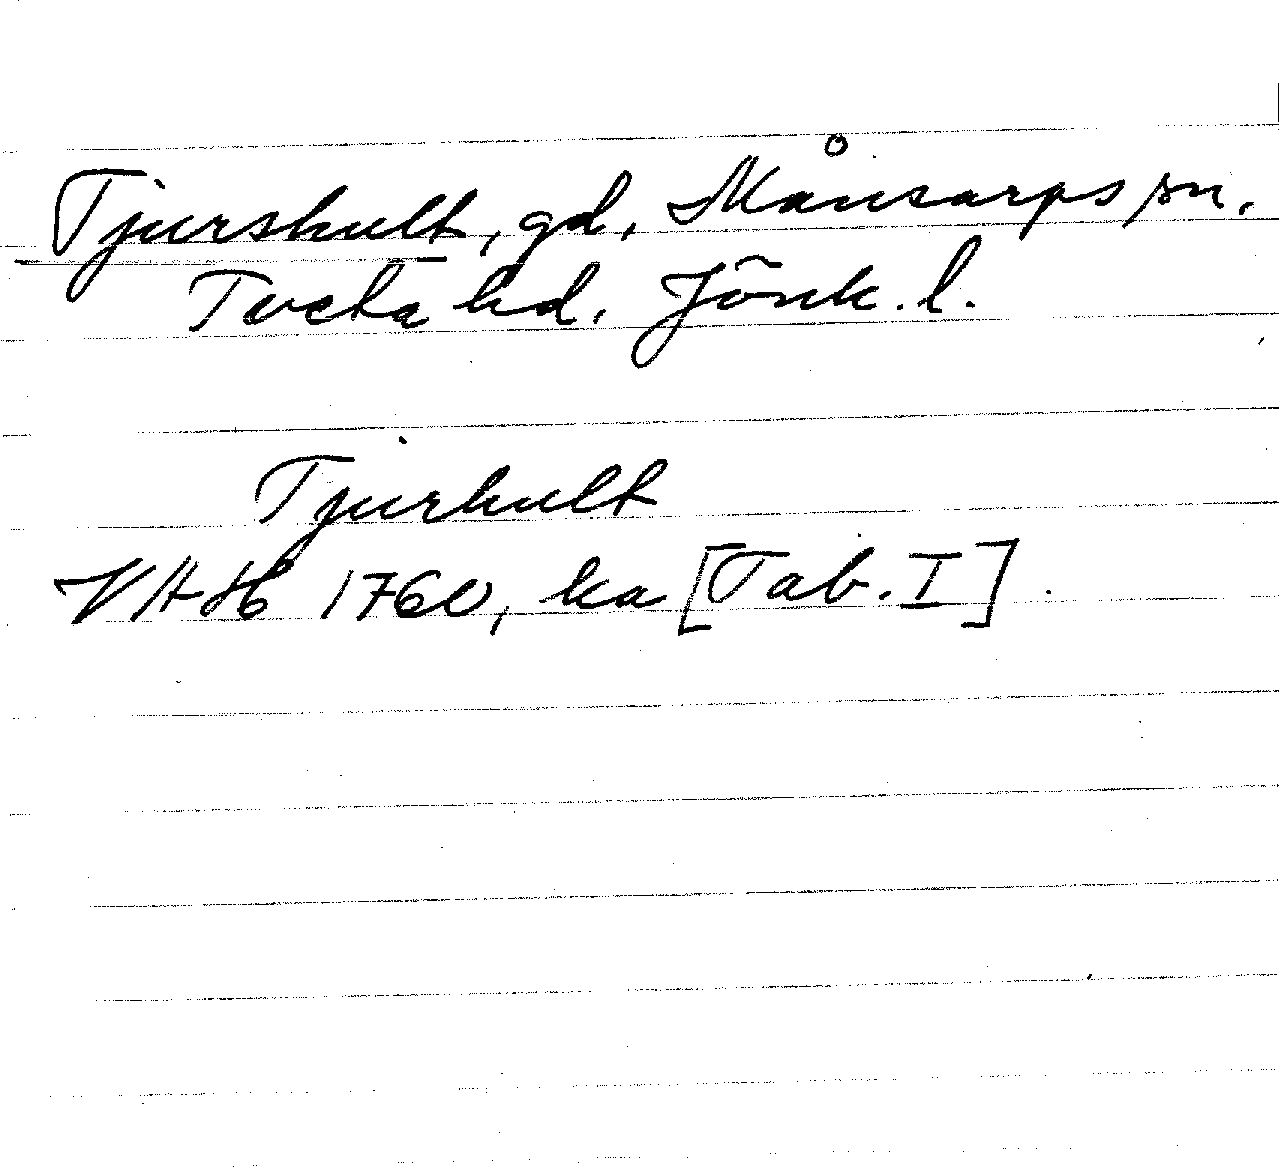 Tjurshult, gd, Månsarps sn.
Tveta hd. Jönk. l.
Tjurhult
VHAH 1760, ka [Tab. I].